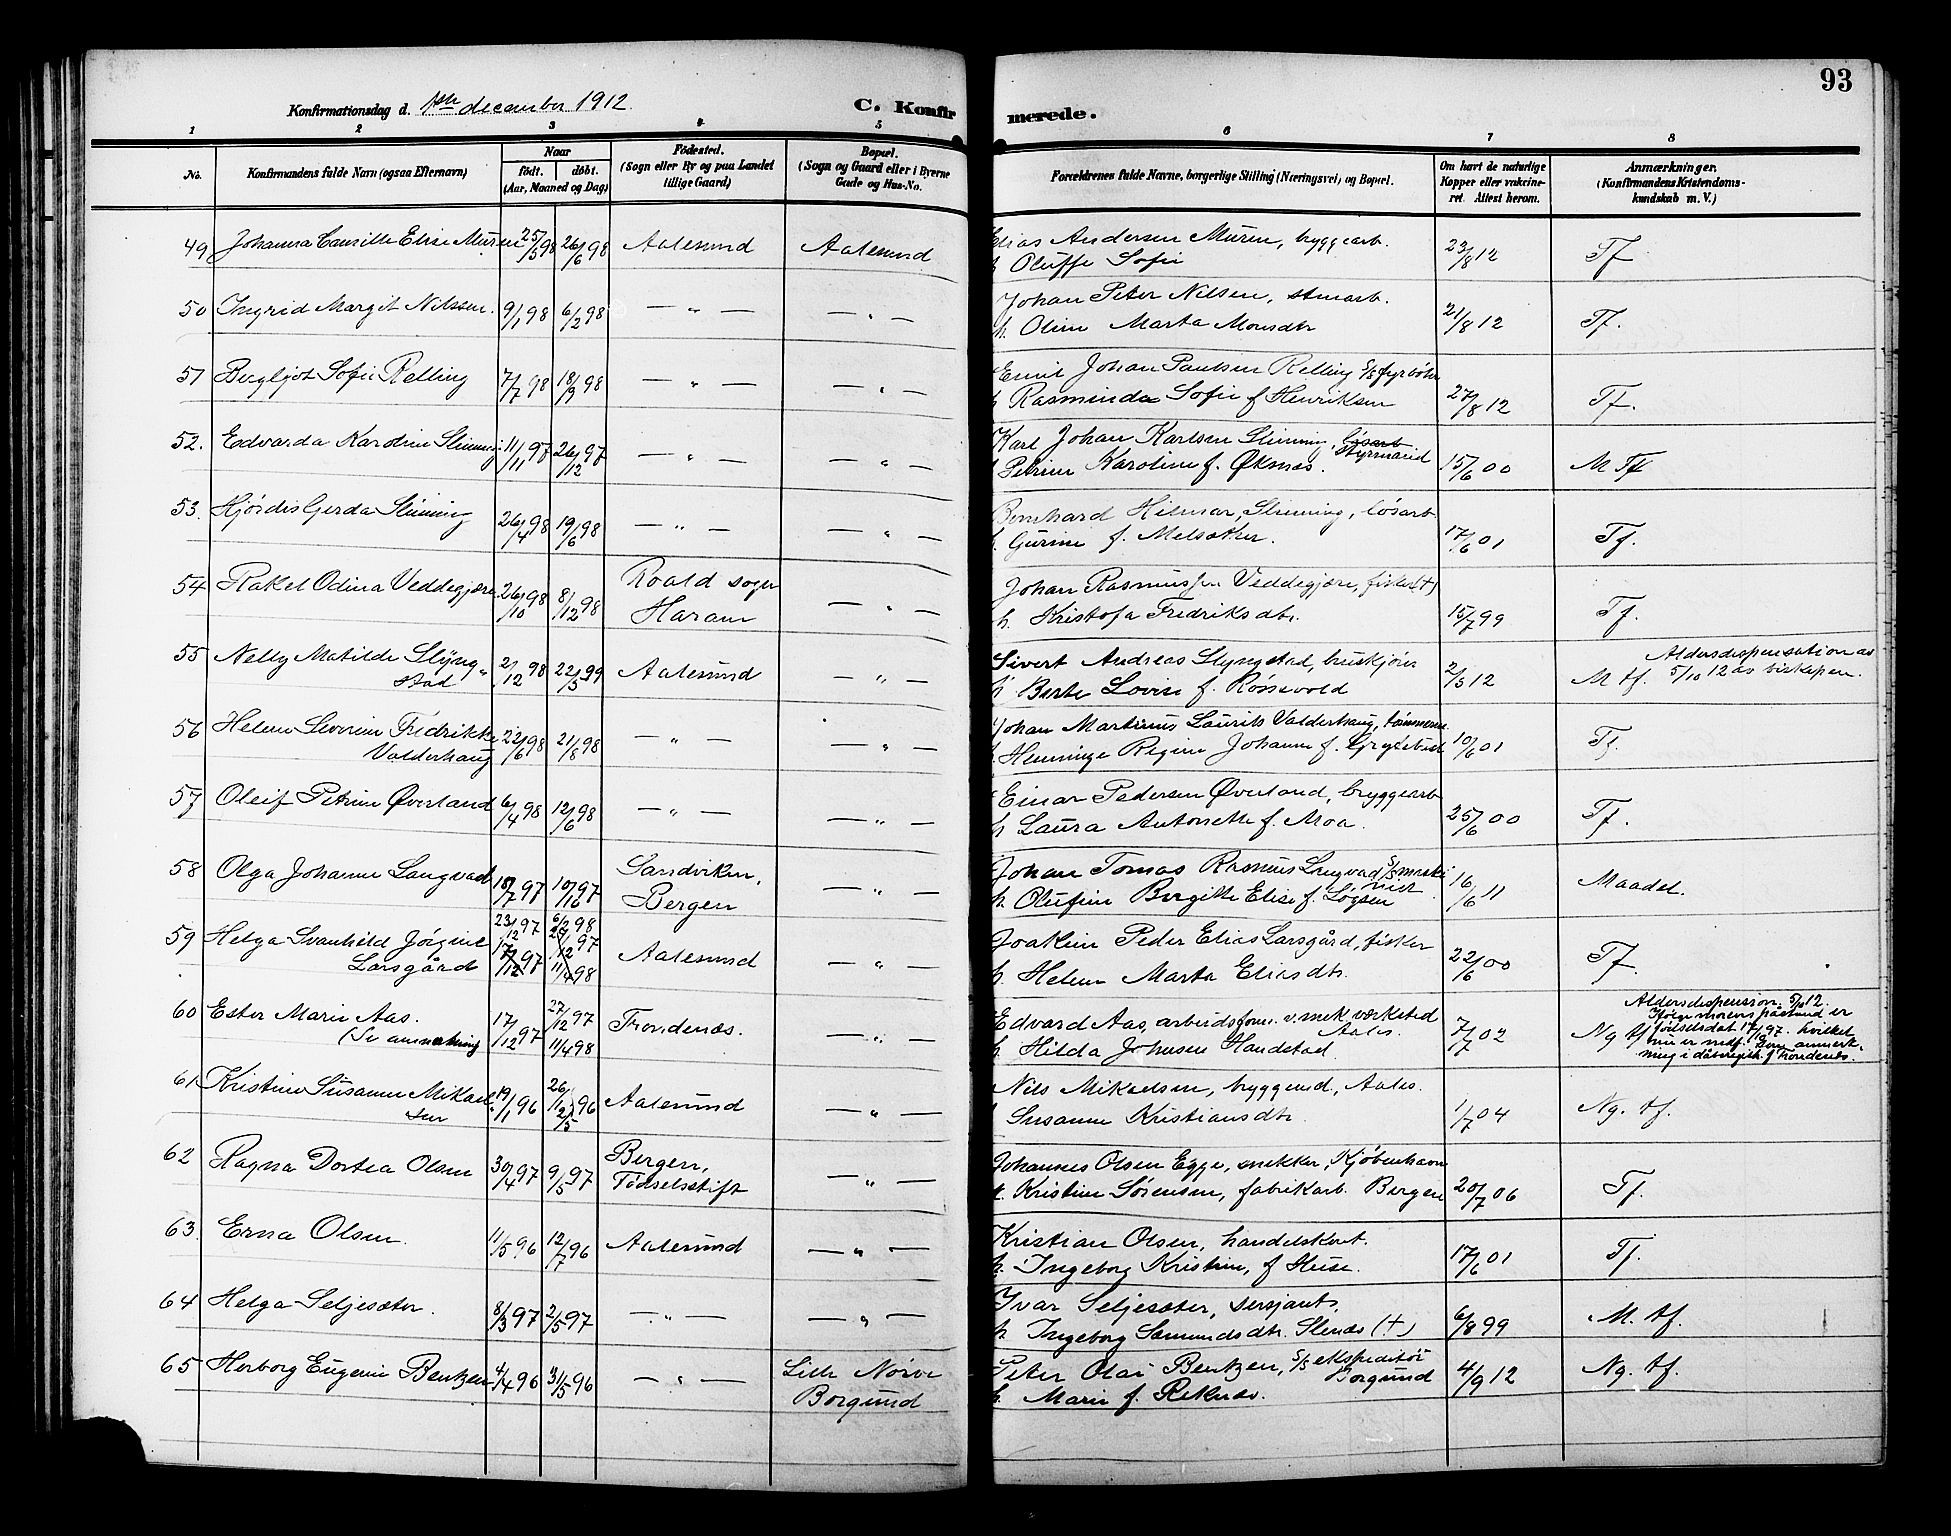 93
Konfirmationsdag d. 1ste december 1912.
C. Konfirmerede.
1 2 3 4 5 6 7 8
No.
Konfirmandens fulde Navn (ogsaa Efternavn)
Naar
født. døbt.
(Aar, Maaned og Dag)
Fødested.
(Sogn eller By og paa Landet
tillige Gaard)
Bopæl.
(Sogn og Gaard eller i Byerne
Gade og Hus-No.
Forældrenes fulde Navne, borgerlige Stilling (Næringsvei) og Bopæl.
Om havt de naturlige
Kopper eller vakcineret. Attest herom.
Anmærkninger.
(Konfirmandens Kristendomskundskab m. V.)
49 Johanna Camilla Elise Muren 25/5 98 26/6 98 Aalesund Aalesund
Elias Andersen Muren, bryggearb.
h. Oluffe Sofie 23/8 12 Tf
50 Ingrid Margit Nilssen. 9/1 98 6/2 98 — " — — " —
Johan Peter Nilsen, stuearb.
h. Oline Marta Monsdtr 21/8 12 Tf.
51 Bergljot Sofie Relling 7/7 98 18/9 98 — " — — " —
Emil Johan Paulsen Relling S/S fyrbøter
h Rasminda Sofie f Henriksen 27/8 12 Tf.
52. Edvarda Karoline Slinning 11/11 97 26/12 97 — " — — " —
Karl Johan Karlsen Slinning, løsarb. Styrmand
h. Petrine Karoline f. Øknes. 15/6 00 M Tf
53. Hjørdis Gerda Slinning 26/4 98 19/6 98 — " — — " —
Bernhard Hilmar Slinning, løsarb.
h. Gurine f. Melsæther. 17/6 01 Tf.
54 Rakel Odina Veddegjære 26/10 98 8/12 98 Roald sogn
Haram — " —
Johan Rasmussen Veddegjære, fisker (+)
h. Kristofa Fredriksdtr. 15/7 99 Tf.
55 Nelly Matilde Slyng-
stad 2/12 98 22/5 99 Aalesund — " —
Sivert Andreas Slyngstad, bruskjører
h. Berte Lovise f. Røssevold 2/5 12 M tf. Aldersdispensation av
5/10 12 av biskopen.
56 Helene Severine Fredrikke
Valderhaug 22/6 98 21/8 98 — " — — " —
Johan Martinus Laurits Valderhaug, tømmerm.
h. Henninge Regine Johanne f. Grytebust 10/6 01 Tf.
57 Oleif Petrine Øverland 6/4 98 12/6 98 — " — — " —
Einar Pedersen Øverland, bryggearb
h Laura Antonette f. Moa. 25/6 00 Tf.
58 Olga Johanne Langvad 18/7 97 10/10 97 Sandviken,
Bergen — " —
Johan Tomas Rasmus Langvad, S/S maskinist
h. Olufine Birgitte Elise f. Løgsen 16/6 11 Maadel.
59 Helga Svanhild Jørgine
Larsgård 23/12 97 6/2 98 Aalesund — " —
17/12 97 27/12 97
11/4 98
Joakim Peder Elias Larsgård, fisker
h. Helene Marta Eliasdtr. 22/6 00 Tf.
60 Ester Marie Aas.
(Se anmerkning 17/12 97 27/12 97 11/4 98 Trondenæs. — " —
Edvard Aas, arbeidsform. v. mek. verksted
Aales.
h. Hilda Johnsen Handstad 7/7 02 Ng tf Aldersdispension. 5/10 12.
Ifølge morens påstand er
fødselsdat 17/1 97. hvilket
nu er nedf. som anmerkning i dåbsregistr. f Trondenes.
61 Kristine Susanne Mikael-
sen 19/1 96 26/1 96 2/5 Aalesund — " —
Nils Mikaelsen, bryggemd, Aales.
h. Susanne Kristiansdtr. 1/7 04 Ng. tf.
62 Ragna Dortea Olsen 30/4 97 9/5 97 Bergen,
Fødselsstift — " —
Johannes Olsen Egge, snekker, Kjøbenhavn
h. Kristine Sørensen, fabrikarb. Bergen 20/7 06 Tf.
63. Erna Olsen. 11/5 96 12/7 96 Aalesund — " —
Kristian Olsen, handelskont.
h. Ingeborg Kristine, f Huse. 17/6 01 Tf.
64 Helga Seljesæter. 8/3 97 2/5 97 — " — — " —
Ivar Seljesæter, sersjant,
h. Ingeborg Sæmundsdtr. Slenæs (+) 6/8 99 M. tf.
65 Herborg Eugenie Bentzen 4/4 96 31/5 96 — " — Lille Nørve
Borgund
Peter Olai Bentzen, S/S ekspeditør
Borgund
h. Marie f. Reknæs. 4/9 12 Ng. tf.